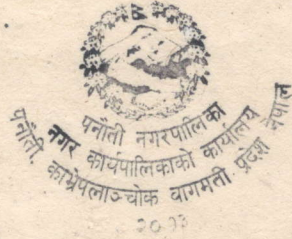 पनौती नगरपालिका
नगर कार्यपालिकाको कार्यालय
पनौती, काभ्रेपलाञ्चोक वागमती प्रदेश नेपाल
२०७३